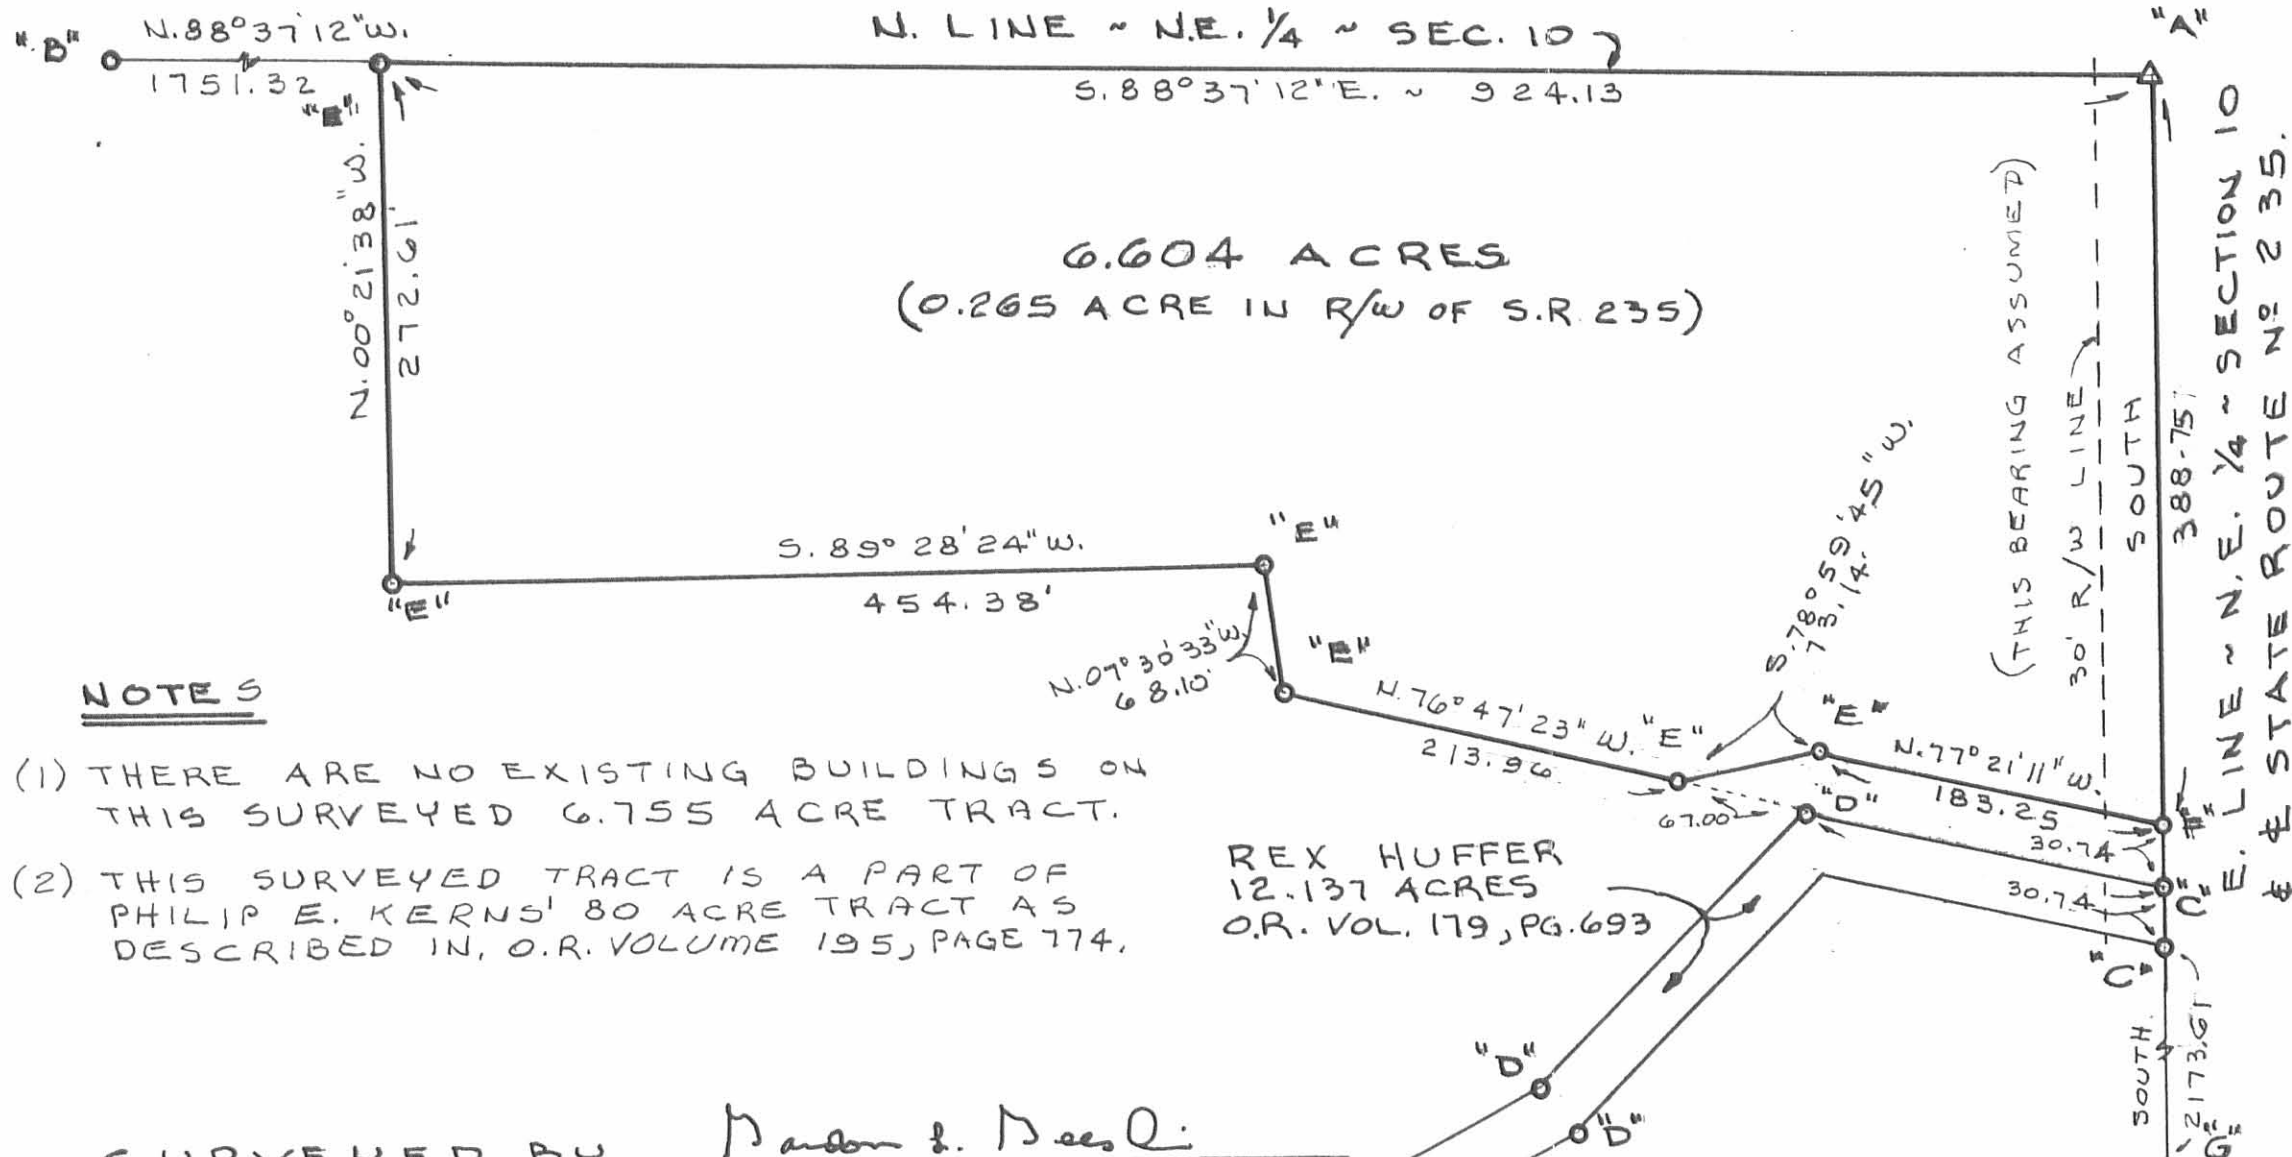 "B"
N.88°37'12"W.
1751.32
N. LINE ~ N.E. 1/4 ~ SEC. 10
S.88°37'12"E. ~ 924.13
"A"
"E"
N.00°21'38"W.
272.61'
6.604 ACRES
(0.265 ACRE IN R/W OF S.R. 235)
(THIS BEARING ASSUMED)
30' R/W LINE
SOUTH
388.75'
E. LINE ~ N.E. 1/4 ~ SECTION 10
& ℄ STATE ROUTE Nº 235.
S. 89° 28'24" W.
454.38'
"E"
"E"
N.07°30'33"W.
68.10'
"E"
N.76°47'23" W.
213.96
"E"
S.78°59'45"W.
73.14.
"E"
N.77°21'11" W.
183.25
67.00
"D"
30.74
"F"
30.74
"C"
"C"
NOTES
(1) THERE ARE NO EXISTING BUILDINGS ON
THIS SURVEYED 6.755 ACRE TRACT.
(2) THIS SURVEYED TRACT IS A PART OF
PHILIP E. KERNS' 80 ACRE TRACT AS
DESCRIBED IN, O.R. VOLUME 195, PAGE 774.
REX HUFFER
12.137 ACRES
O.R. VOL. 179, PG.693
"D"
"D"
SOUTH
2173.61
"G"
SURVEYED BY